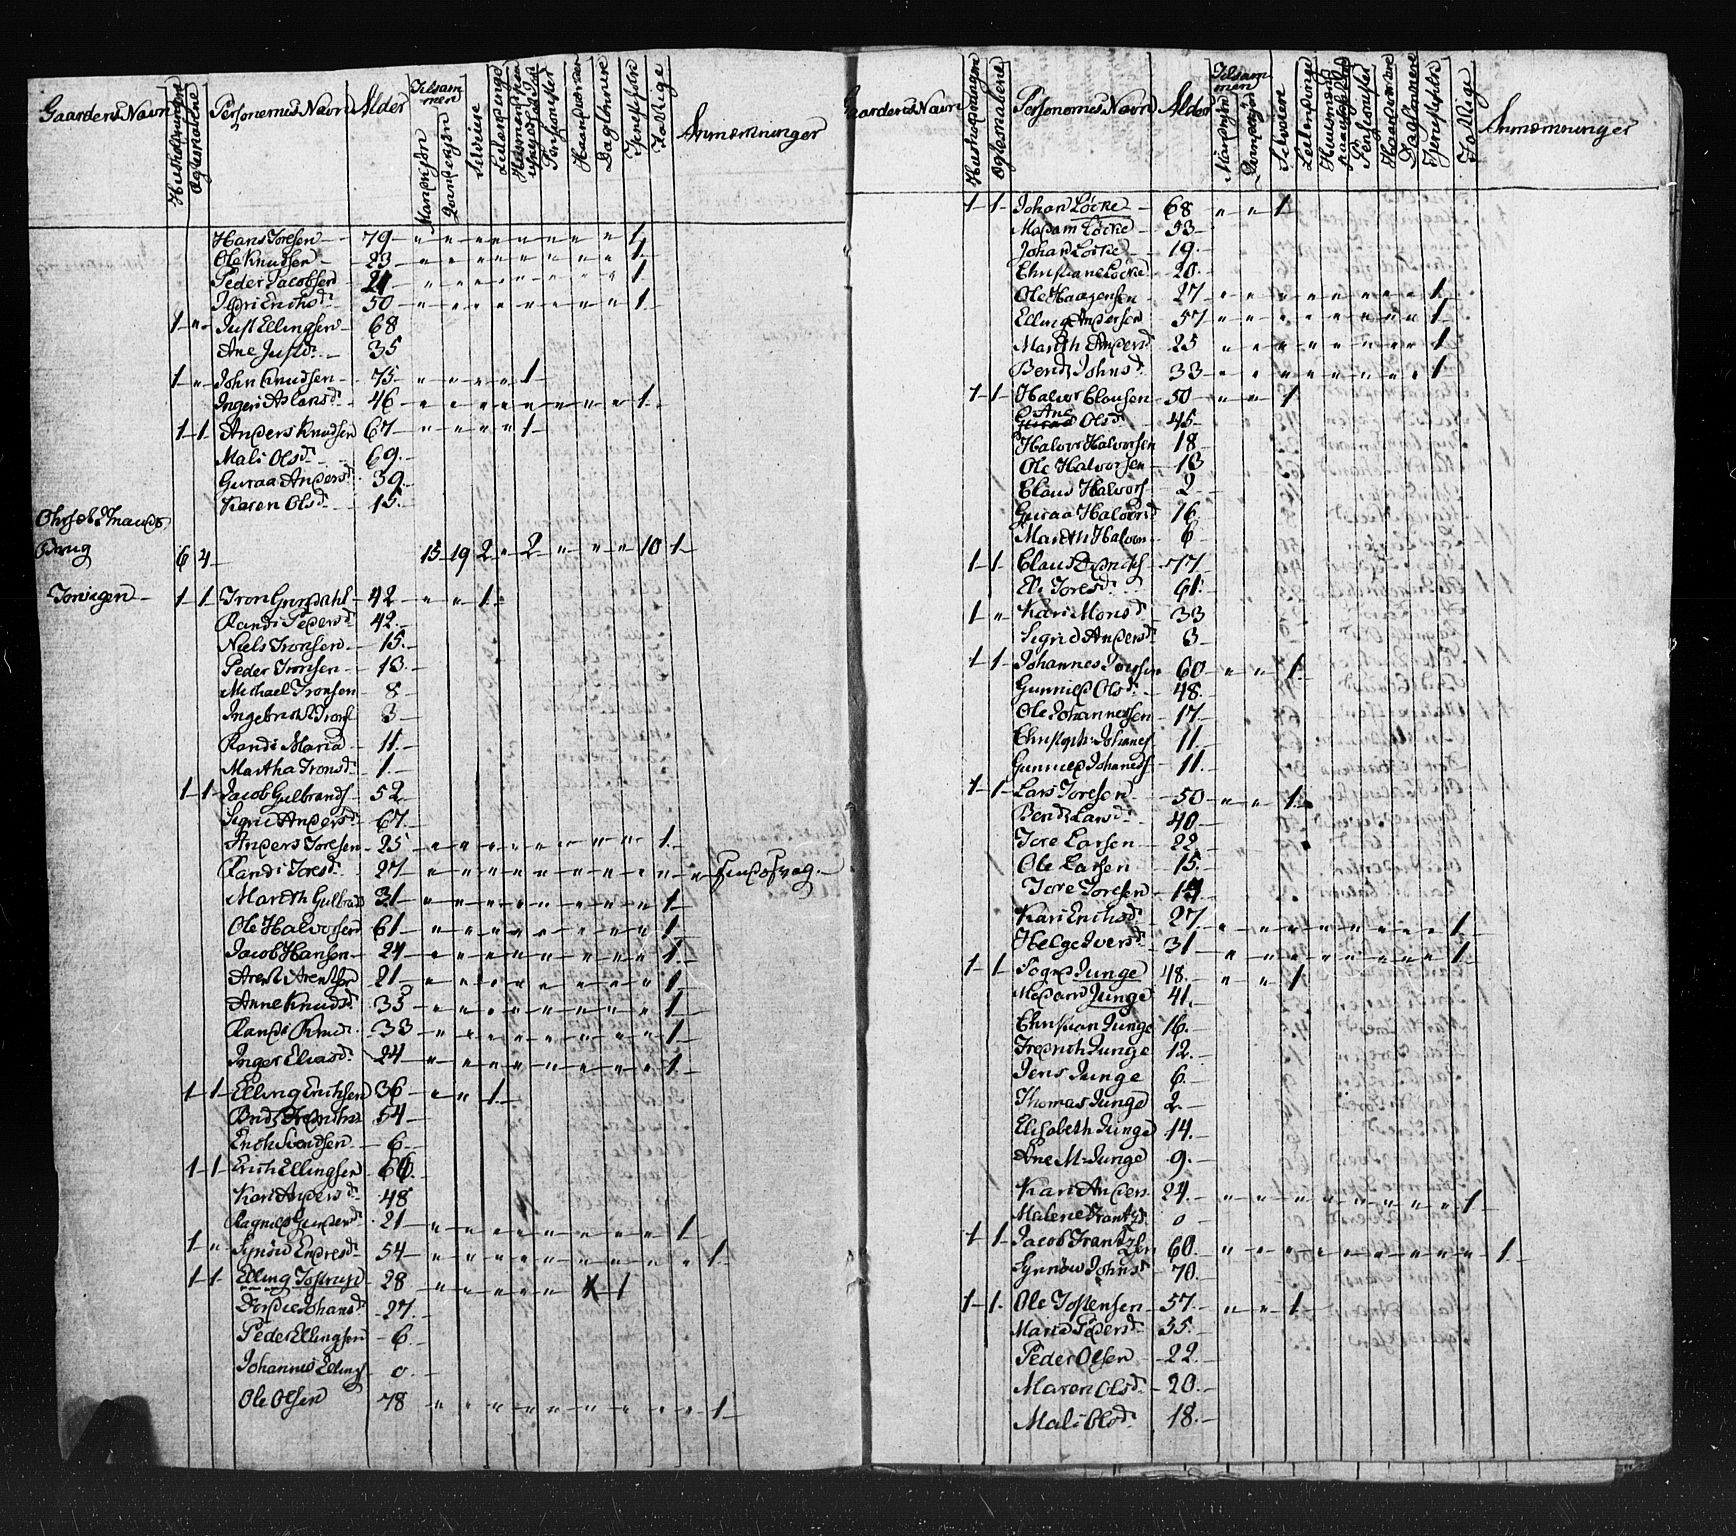 Gaardens Navn Huusholdningerne Personernes Navn Alder Tilsammen Mandkjøn Selveiere Haandværkere Daglønnere Tjenestfolk Fattige Anmærkninger
Hans Toresen 79 " " " " " " " " 1
Ole Knudsen 23 " " " " " " " " 1
Peder Jacobsen 21 " " " " " " " " 1
Erichsd. 50 " " " " " " " " 1
1 " Just Ellingsen 68
Ane Justd. 35
1 " John Knudsen 75 " " " " 1
Ingeri Aslansd. 46 " " " " " " " " 1
1 1 Anders Knudsen 67 " " " " 1
Mali Olsd. 69
Guraa Andersd. 39
Karen Olsd. 15
Brug 6 4 15 19 2 " 2 " " " 10 1
1 1 Tron 42 " " 1
Randi Pedersd. 42
Niels Tronsen 15
Peder Tronsen 13
Michael Tronsen 8
Ingebricht Trons 3
Randi Maria 11
Martha Tronsd. 1
1 1 Jacob Gulbrands 52
Sigrie Andersd. 67
Anders Toresen 25 " " " " " " " " 1
Randi Toresd. 27 " " " " " " " " " "
Marith Gulbrands 31 " " " " " " " " 1
Ole Halvorsen 61 " " " " " " " " 1
Jacob Hansen 24 " " " " " " " " 1
Arent Arentsen 21 " " " " " " " " 1
Anne Knudsd. 35 " " " " " " " " 1
Randi Knud. 33 " " " " " " " " 1
Inger Eliasd. 24 " " " " " " " " 1
1 1 Elling Erichsen 36 " " 1
54
Erich Svendsen 6
1 1 Erich Ellingsen
Kari Andersd. 48
Ragnild Gunders 21 " " " " " " " " 1
1 " Synøv Endresd. 54 " " " " " " " " " 1
1 1 Elling Tostrup 28 " " " " " 1
Dordie Johansd. 27
Peder Ellingsen 6
Johannis Ellings 0
Ole Olsen 78 " " " " " " " " " 1
Gaardens Navn Huusholdningerne Personernes Navn Alder Tilsammen Mandkjøn Selveiere Daglønnere Tjenestfolk Fattige Anmærkninger
1 1 Johan Löcke 68 " " 1
Madam Löcke 53
Johan Löcke 19
Christiane Löcke 20
Ole Haagensen 27 " " " " " " " " 1
Elling Andersen 57 " " " " " " " " 1
Marith Andersd. 25 " " " " " " " " 1
Bend. Johnsd. 33 " " " " " " " " 1
1 1 Halvor Clausen 50 " " 1
Ane
Olsd. 45
Halvor Halvorsen 18
Ole Halvorsen 13
Claus Halvors 2
Guraa Halvorsd. 16
Marith Halvors 6
1 1 Claus 77
Eli Toresd. 61
1 " Kari Monsd. 33
Sigrid Andersd. 3
1 1 Johannes 60 " " 1
Gunnild Olsd. 48
Ole Johannessen 17
Christoph. Johannes 11
Gunnild Johannesd. 11
1 1 Lars Toresen 50 " " 1
Bend. Larsd. 40
Tore Larsen 22
Ole Larsen 15
Tore Toresen
Kari Erichsd. 27 " " " " " " " " 1
Helge Iversd. 31 " " " " " " " " 1
1 1 Junge 48 " " 1
Madam Junge 41
Christian Junge 16
Fredrich Junge 12
Jens Junge 6
Thomas Junge 2
Elisabeth Junge 14
Ane M. Junge 9
Kari Anders 24 " " " " " " " " 1
Malene Frantzd. 0
1 1 Jacob Frantzsen 60 " " " " " " " " " 1
Synøv Johnsd. 70
1 1 Ole Tostensen 57 " " 1
Maria Pedersd. 55
Peder Olsen 22
Maren Olsd. 20
Mali Olsd. 18